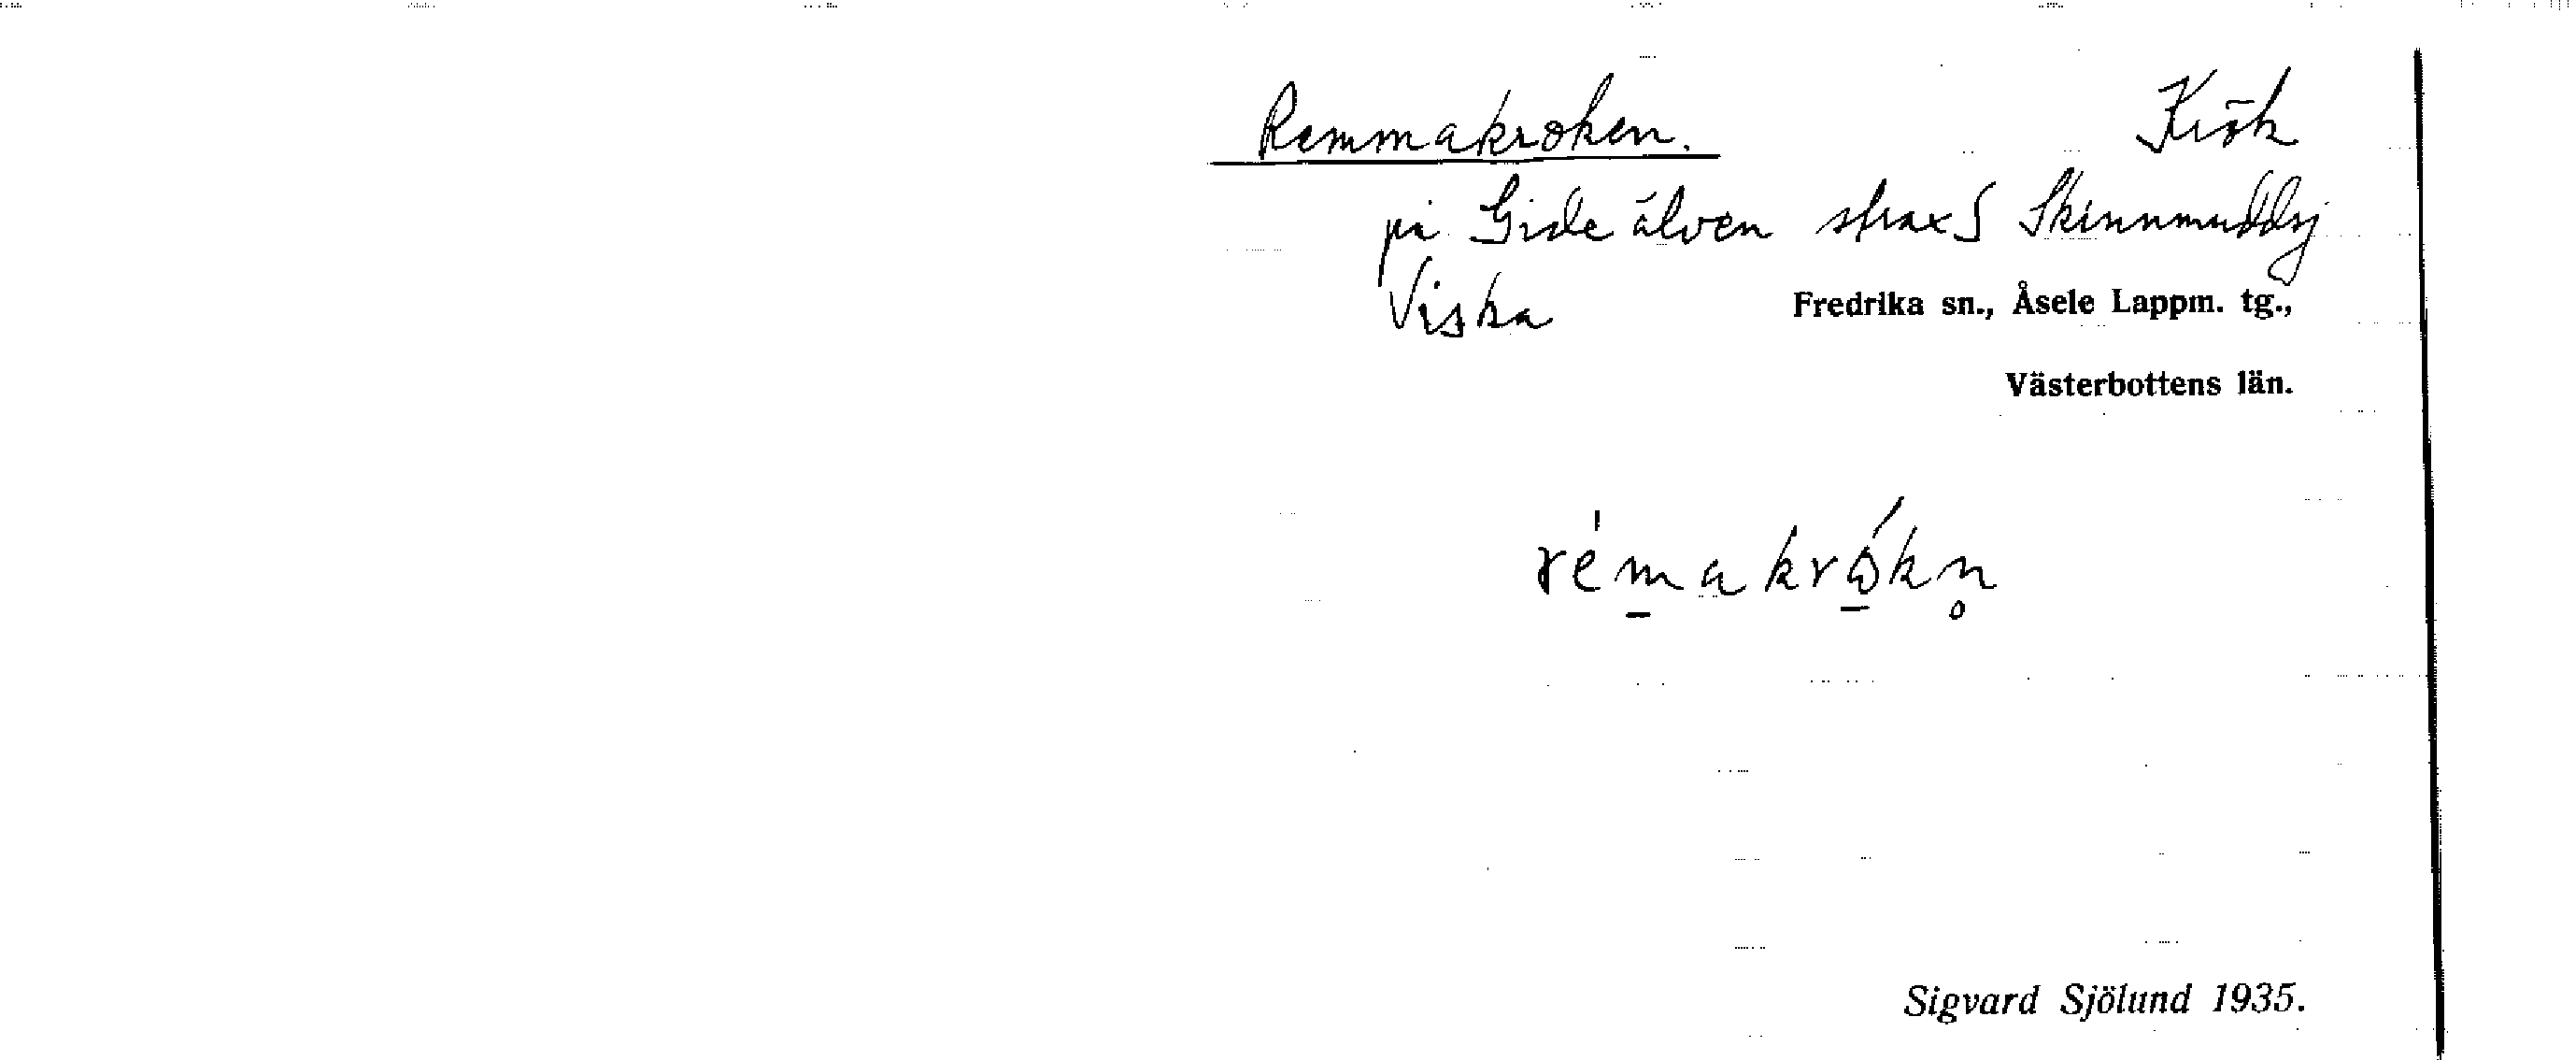 Remmakroken. Krök
på Gide älven strax S Skinnmuddsj
Viska Fredrika sn., Åsele Lappm. tg.,
Västerbottens län.
rémakrókn̥
Sigvard Sjölund 1935.